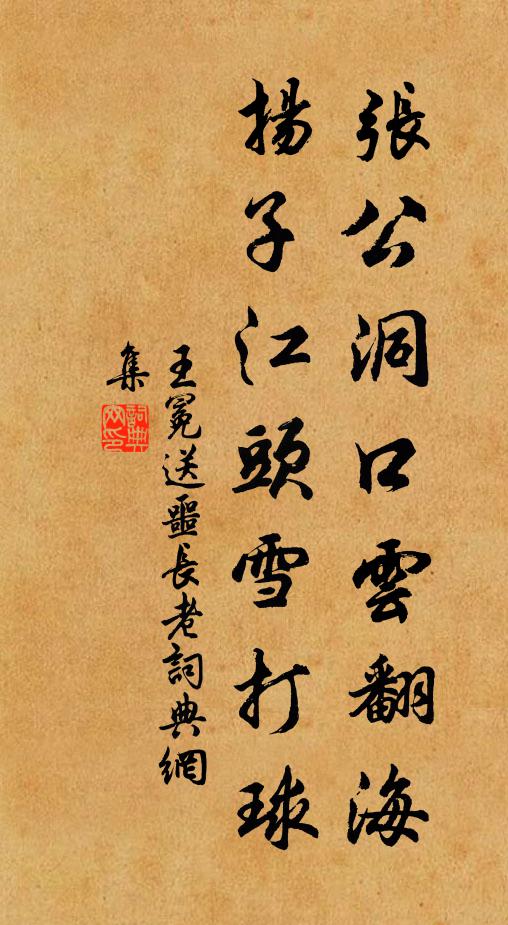 張公洞口雲翻海
揚子江頭雪打球
王冕送噩長老詞典網
集
詞典
網印